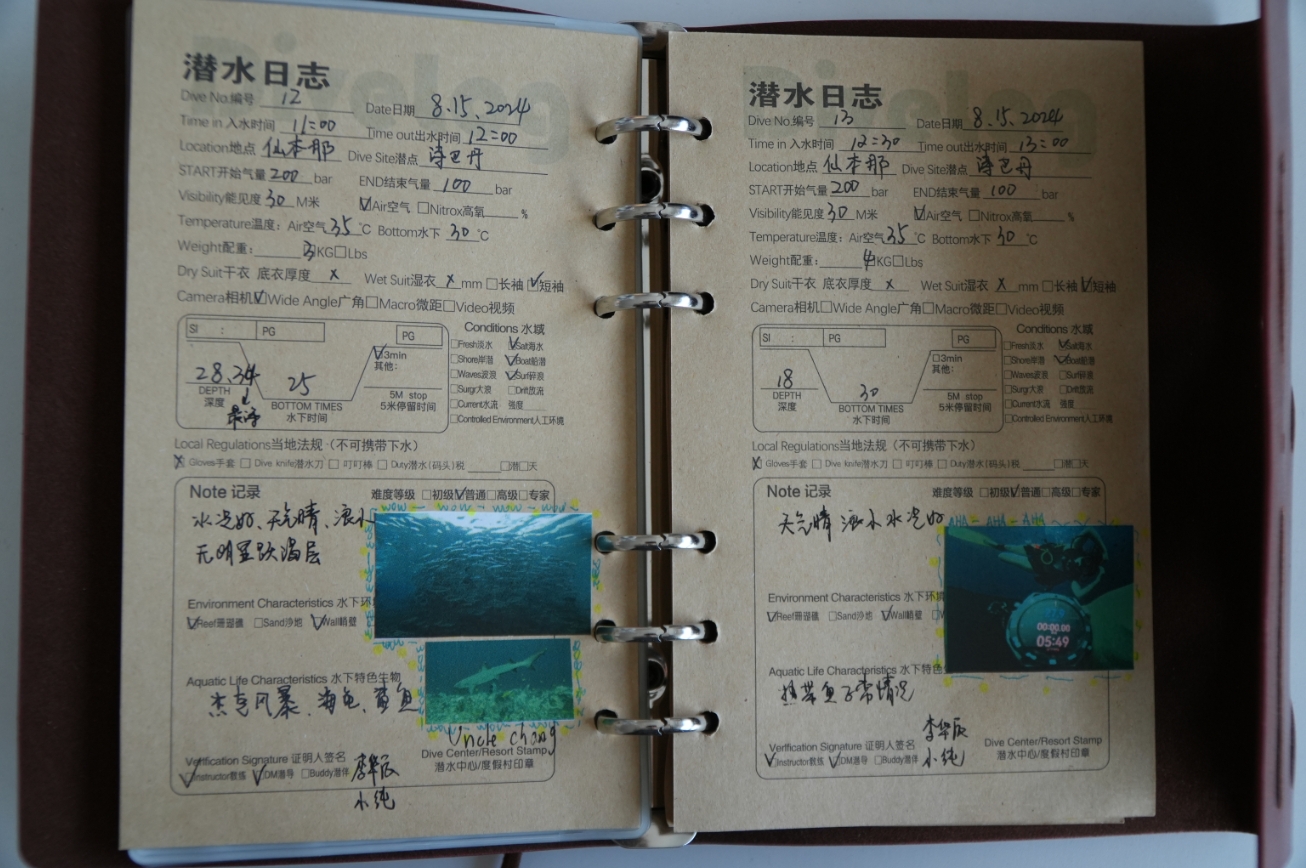 潜水日志
Dive No.编号 12 Date日期 8.15.2024
Time in 入水时间 11:00 Time out出水时间 12:00
Location地点 仙本那 Dive Site潜点 诗巴丹
START开始气量 200 bar END结束气量 100 bar
Visibility能见度 30 M米 ☑Air空气 □Nitrox高氧 %
Temperature温度：Air空气 35 ℃ Bottom水下 30 ℃
Weight配重： 3 KG□Lbs
Dry Suit干衣 底衣厚度 x Wet Suit湿衣 x mm □长袖 ☑短袖
Camera相机☑Wide Angle广角□Macro微距□Video视频
SI : PG PG
Conditions 水域
□Fresh淡水 ☑Salt海水
☑3min
□Shore岸潜 ☑Boat船潜
其他:
□Waves波浪 ☑Surf碎浪
28.34 25
□Surgr大浪 □Drift放流
DEPTH 深度
BOTTOM TIMES 水下时间
5M stop
5米停留时间
□Current水流 强度
最深
□Controlled Environment人工环境
Local Regulations当地法规（不可携带下水）
☒ Gloves手套 □ Dive knife潜水刀 □ 叮叮棒 □ Duty潜水(码头)税 □潜□天
Note 记录 难度等级 □初级☑普通□高级□专家
水况好、天气晴、浪小
无明显跃温层
wow - wow - wow - wow
Environment Characteristics 水下环
☑Reef珊瑚礁 □Sand沙地 ☑Wall峭壁
Aquatic Life Characteristics 水下特色生物
杰克风暴、海龟、鲨鱼
Uncle chang
Verification Signature 证明人签名
Dive Center/Resort Stamp
潜水中心/度假村印章
☑Instructor教练 ☑DM潜导 □Buddy潜伴
小纯
潜水日志
Dive No.编号 13 Date日期 8.15.2024
Time in 入水时间 12:30 Time out出水时间 13:00
Location地点 仙本那 Dive Site潜点 诗巴丹
START开始气量 200 bar END结束气量 100 bar
Visibility能见度 30 M米 ☑Air空气 □Nitrox高氧 %
Temperature温度：Air空气 35 ℃ Bottom水下 30 ℃
Weight配重： 4 KG□Lbs
Dry Suit干衣 底衣厚度 x Wet Suit湿衣 x mm □长袖 ☑短袖
Camera相机□Wide Angle广角□Macro微距□Video视频
SI : PG PG
Conditions 水域
□Fresh淡水 ☑Salt海水
□3min
□Shore岸潜 ☑Boat船潜
其他:
□Waves波浪 □Surf碎浪
18 30
□Surgr大浪 □Drift放流
DEPTH 深度
BOTTOM TIMES 水下时间
5M stop
5米停留时间
□Current水流 强度
□Controlled Environment人工环境
Local Regulations当地法规（不可携带下水）
☒ Gloves手套 □ Dive knife潜水刀 □ 叮叮棒 □ Duty潜水(码头)税 □潜□天
Note 记录 难度等级 □初级☑普通□高级□专家
天气晴 浪小 水况好
AHA - AHA - AHA
Environment Characteristics 水下环境
☑Reef珊瑚礁 □Sand沙地 ☑Wall峭壁
00:00.00
05:49
Aquatic Life Characteristics 水下特色
热带鱼
Verification Signature 证明人签名
Dive Center/Resort Stamp
潜水中心/度假村印章
☑Instructor教练 ☑DM潜导 □Buddy潜伴
小纯